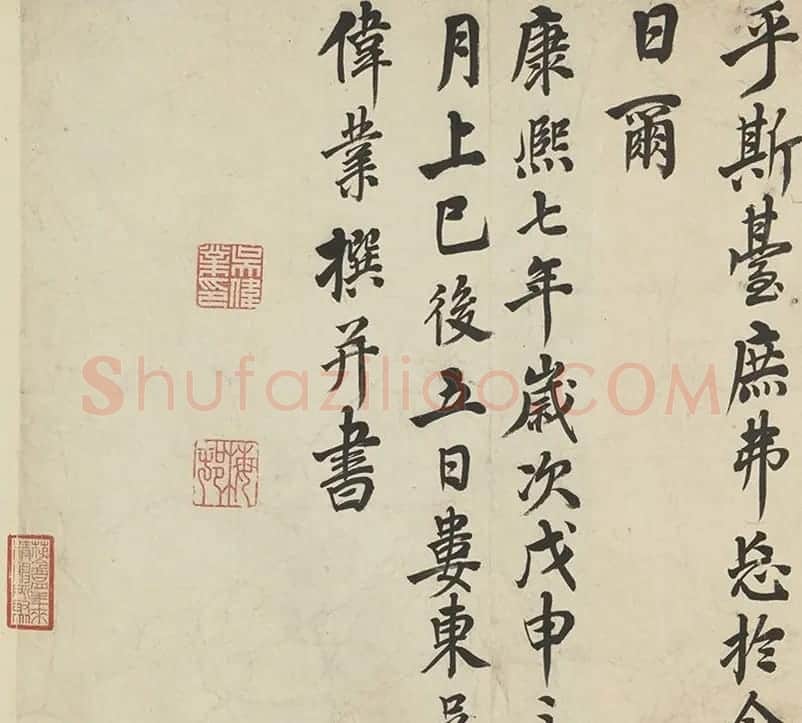 乎斯臺庶弗忘於今
日爾
康熙七年歲次戊申三
月上巳後五日婁東吳
偉業撰并書
吳偉業印
梅邨
Shufaziliao.COM